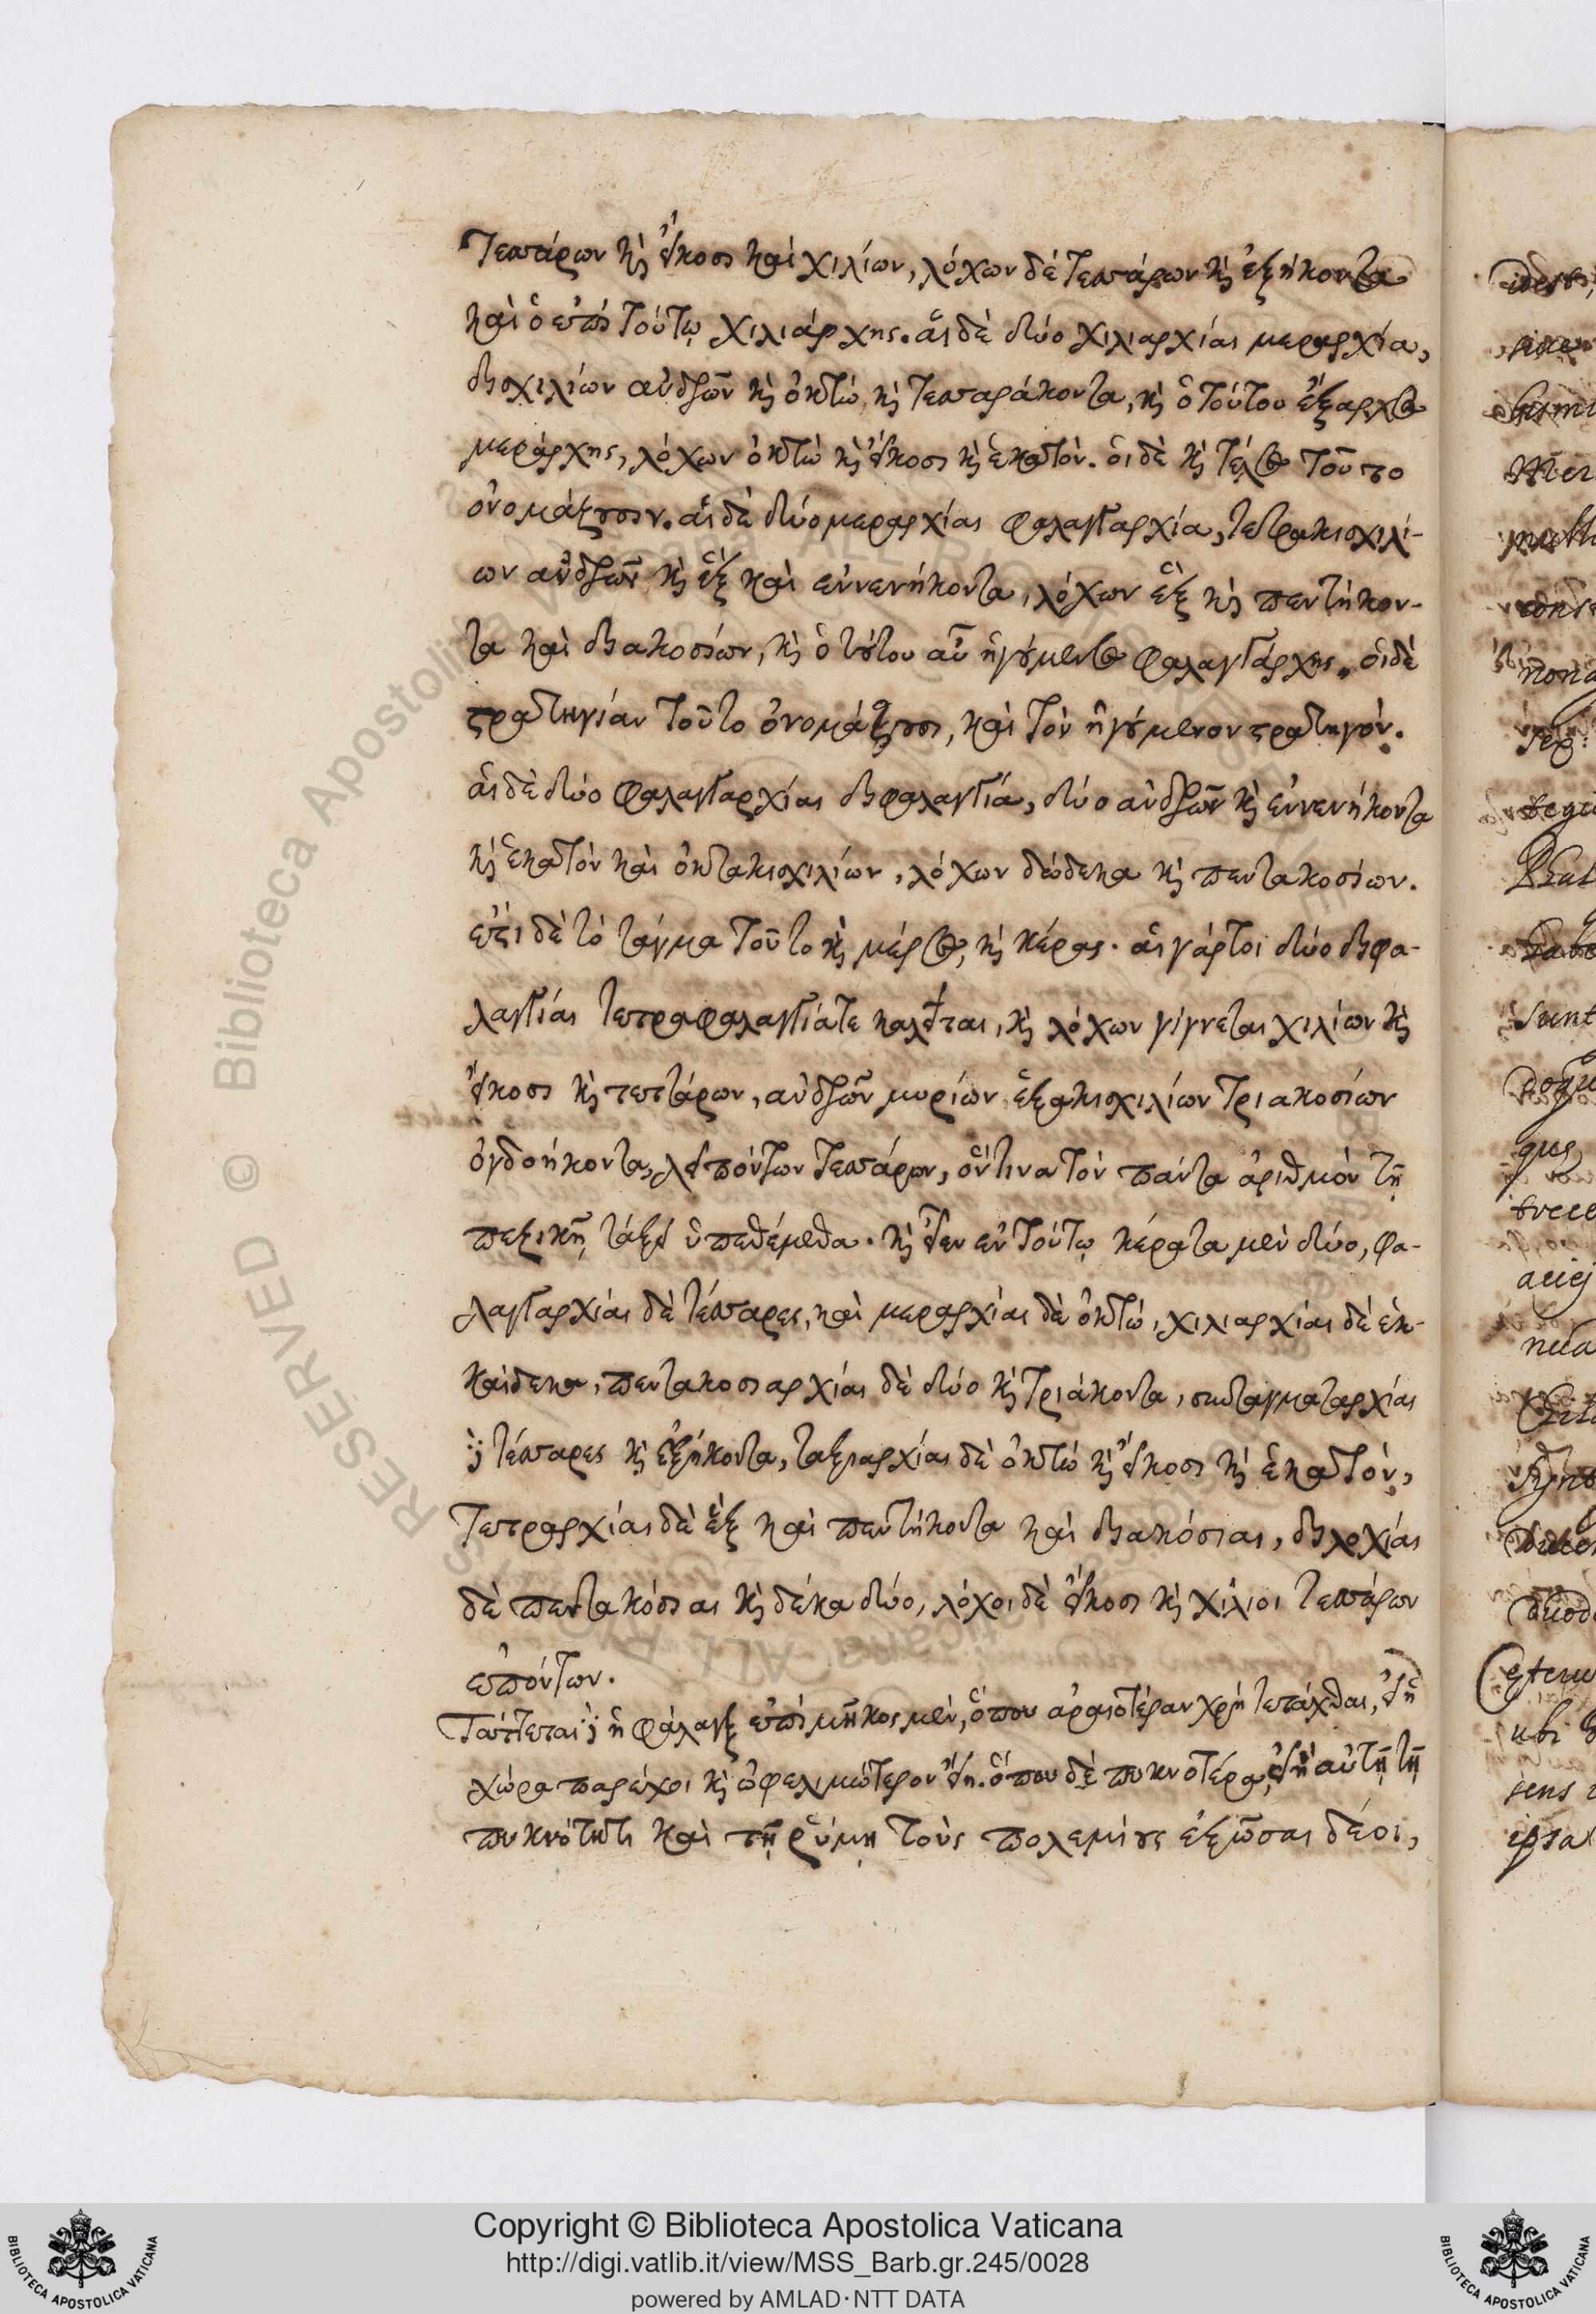 Τεσσάρων καὶ εἴκοσι καὶ χιλίων, λόχων δὲ Τεσσάρων καὶ ἑξήκοντα
καὶ ὁ ἐπὶ τούτῳ χιλιάρχης. αἱ δὲ δύο χιλιαρχίαι μεραρχία,
δισχιλίων ἀνδρῶν καὶ ὀκτὼ καὶ Τεσσαράκοντα, καὶ ὁ τούτου ἔξαρχος
μεράρχης, λόχων ὀκτὼ καὶ εἴκοσι καὶ ἑκατόν. οἱ δὲ καὶ τέλος τοῦτο
ὀνομάζουσιν. αἱ δὲ δύο μεραρχίαι φαλαγγαρχία, τετρακισχιλί-
ων ἀνδρῶν καὶ ἓξ καὶ ἐννενήκοντα, λόχων ἓξ καὶ πεντήκον-
τα καὶ διακοσίων, καὶ ὁ τούτου αὖ ἡγούμενος φαλαγγάρχης. οἱ δὲ
στρατηγίαν τοῦτο ὀνομάζουσι, καὶ τὸν ἡγούμενον στρατηγόν.
αἱ δὲ δύο φαλαγγαρχίαι διφαλαγγία, δύο ἀνδρῶν καὶ ἐννενήκοντα
καὶ ἑκατὸν καὶ ὀκτακισχιλίων, λόχων δώδεκα καὶ πεντακοσίων.
ἔστι δὲ τὸ τάγμα τοῦτο καὶ μέρος, καὶ κέρας. αἱ γάρ τοι δύο διφα-
λαγγίαι τετραφαλαγγία τε καλεῖται, καὶ λόχων γίγνεται χιλίων καὶ
εἴκοσι καὶ τεττάρων, ἀνδρῶν μυρίων ἑξακισχιλίων τριακοσίων
ὀγδοήκοντα, λειπόντων Τεσσάρων, ὅντινα τὸν πάντα ἀριθμὸν τῇ
πεζικῇ τάξει ὑπεθέμεθα. καὶ εἶεν ἐν τούτῳ κέρατα μὲν δύο, φα-
λαγγαρχίαι δὲ τέσσαρες, καὶ μεραρχίαι δὲ ὀκτώ, χιλιαρχίαι δὲ ἑκ-
καίδεκα, πεντακοσιαρχίαι δὲ δύο καὶ τριάκοντα, συνταγματαρχίαι
δὲ τέσσαρες καὶ ἑξήκοντα, ταξιαρχίαι δὲ ὀκτὼ καὶ εἴκοσι καὶ ἑκατόν,
Τετραρχίαι δὲ ἓξ καὶ πεντήκοντα καὶ διακόσιαι, διλοχίαι
δὲ πεντακόσιαι καὶ δέκα δύο, λόχοι δὲ εἴκοσι καὶ χίλιοι τεσσάρων
ἐπόντων.
Τάττεται δὲ ἡ φάλαγξ ἐπὶ μῆκος μὲν, ὅπου ἀραιοτέραν χρὴ τετάχθαι, εἰ ἡ
χώρα παρέχοι καὶ ὠφελιμώτερον εἴη. ὅπου δὲ πυκνοτέρα, εἰ αὐτῇ τῇ
πυκνότητι καὶ τῇ ῥύμῃ τοὺς πολεμίους ἐξῶσαι δέοι,
Copyright © Biblioteca Apostolica Vaticana
http://digi.vatlib.it/view/MSS_Barb.gr.245/0028
powered by AMLAD·NTT DATA